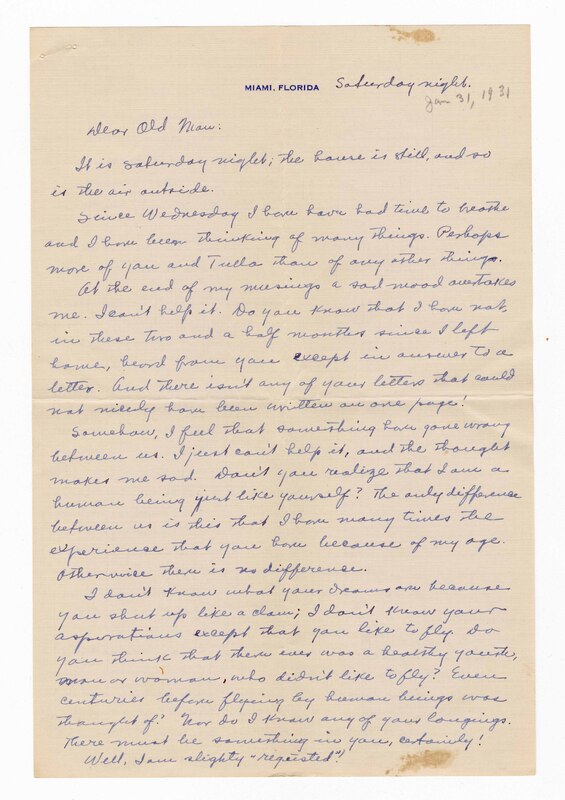 MIAMI, FLORIDA Saturday night.
Jan 31, 1931
Dear Old Man:
It is saturday night; the house is still, and so
is the air outside.
Since Wednesday I have have had time to breathe
and I have been thinking of many things. Perhaps
more of you and Tulla than of any other things.
At the end of my musings a sad mood overtakes
me. I can't help it. Do you know that I have not,
in these two and a half months since I left
home, heard from you except in answer to a
letter. And there isn't any of your letters that could
not nicely have been written on one page!
Somehow, I feel that something have gone wrong
between us. I just can't help it, and the thought
makes me sad. Don't you realize that I am a
human being just like yourself? The only difference
between us is this that I have many times the
experience that you have because of my age.
Otherwise there is no difference.
I don't know what your dreams are because
you shut up like a clam; I don't know your
aspirations except that you like to fly. Do
you think that there ever was a healthy youth,
man or woman, who didn't like to fly? Even
centuries before flying by human beings was
thought of? Nor do I know any of your longings.
There must be something in you, certainly!
Well, I am slighty "requisted"!